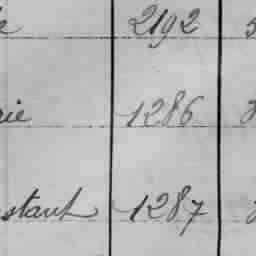 2192
rie 1286
stant 1287